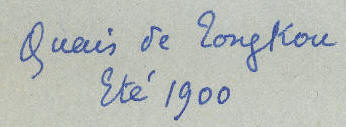 Quais de Tongkou
Eté 1900